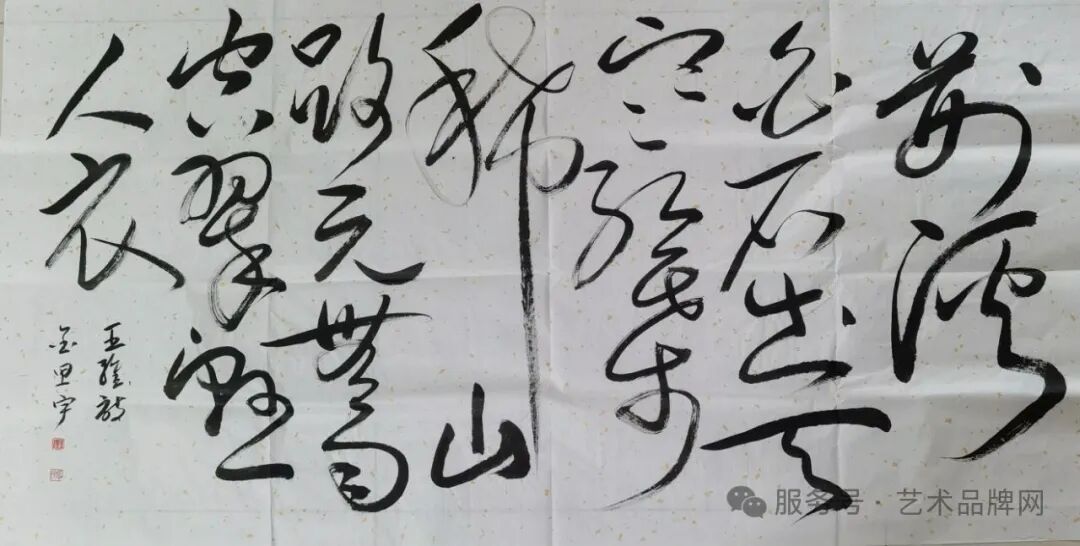 荆溪
白石出天
寒紅葉
稀山
路元無雨
空翠濕
人衣
王維诗
金 宇
服务号 · 艺术品牌网